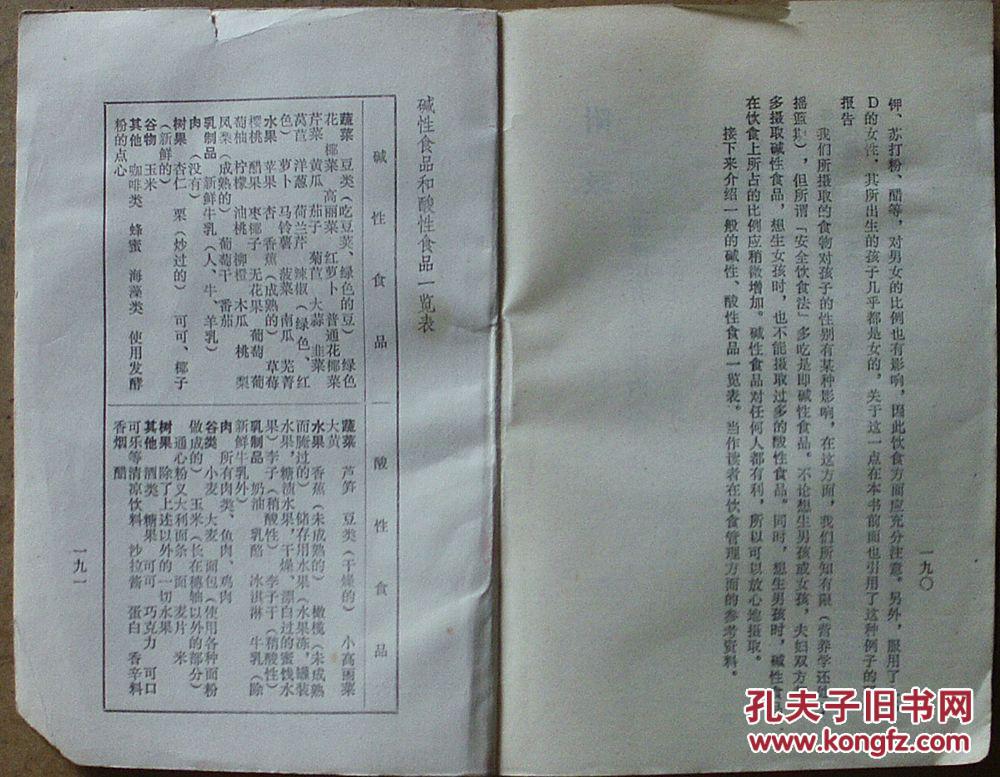 钾、苏打粉、醋等，对男女的比例也有影响，因此饮食方面应充分注意。另外，服用了
D的女性，其所出生的孩子几乎都是女的。关于这一点在本书前面也引用了这种例子的
报告
我们所摄取的食物对孩子的性别有某种影响，在这方面，我们所知有限（营养学还
摇篮期），但所谓「安全饮食法」多吃是即碱性食品。不论想生男孩或女孩，夫妇双方
多摄取碱性食品，想生女孩时，也不能摄取过多的酸性食品。同时，想生男孩时，碱性食品
在饮食上所占的比例应稍微增加。碱性食品对任何人都有利，所以可以放心地摄取。
接下来介绍一般的碱性、酸性食品一览表。当作读者在饮食管理方面的参考资料。
一九〇
碱性食品和酸性食品一览表
碱性食品
蔬菜 豆类（吃豆荚、绿色的豆） 绿色
花椰菜 高丽菜 红萝卜 普通花椰菜
芹菜 黄瓜 茄子 菊苣 大蒜 韭菜
莴苣 洋葱 荷兰芹 辣椒（绿色、红
色） 萝卜 马铃薯 菠菜 南瓜 芜菁
水果 苹果 杏 香蕉（成熟的） 草莓
樱桃 醋果 枣椰子 无花果 葡萄 葡
萄柚 柠檬 油桃 柳橙 木瓜 桃 梨
凤梨（成熟的） 葡萄干 番茄
乳制品 新鲜牛乳（人、牛、羊乳）
肉（没有）
树果 杏仁 栗（炒过的） 可可、椰子
（新鲜的）
谷物 玉米
其他 咖啡类 蜂蜜 海藻类 使用发酵
粉的点心
酸性食品
蔬菜 芦笋 豆类（干燥的） 小高丽菜
大黄
水果 香蕉（未成熟的） 橄榄（未成熟
而腌过的） 储存用水果（水果冻，罐装
水果，糖渍水果，干燥、漂白过的蜜饯水
果）李子（稍酸性） 李子干（稍酸性）
乳制品 奶油 乳酪 冰淇淋 牛乳（除
新鲜牛乳外）
肉 所有肉类、鱼肉、鸡肉
谷类 小麦 大麦 面包（使用各种面粉
做成的） 玉米（长在穗轴以外的部分）
通心粉又大利面条 面 麦片 米
树果 除了上述以外的一切水果
其他 酒类 糖果 可可 巧克力 可口
可乐等清凉饮料 沙拉酱 蛋白 香辛料
香烟 醋
一九一
孔夫子旧书网
www.kongfz.com